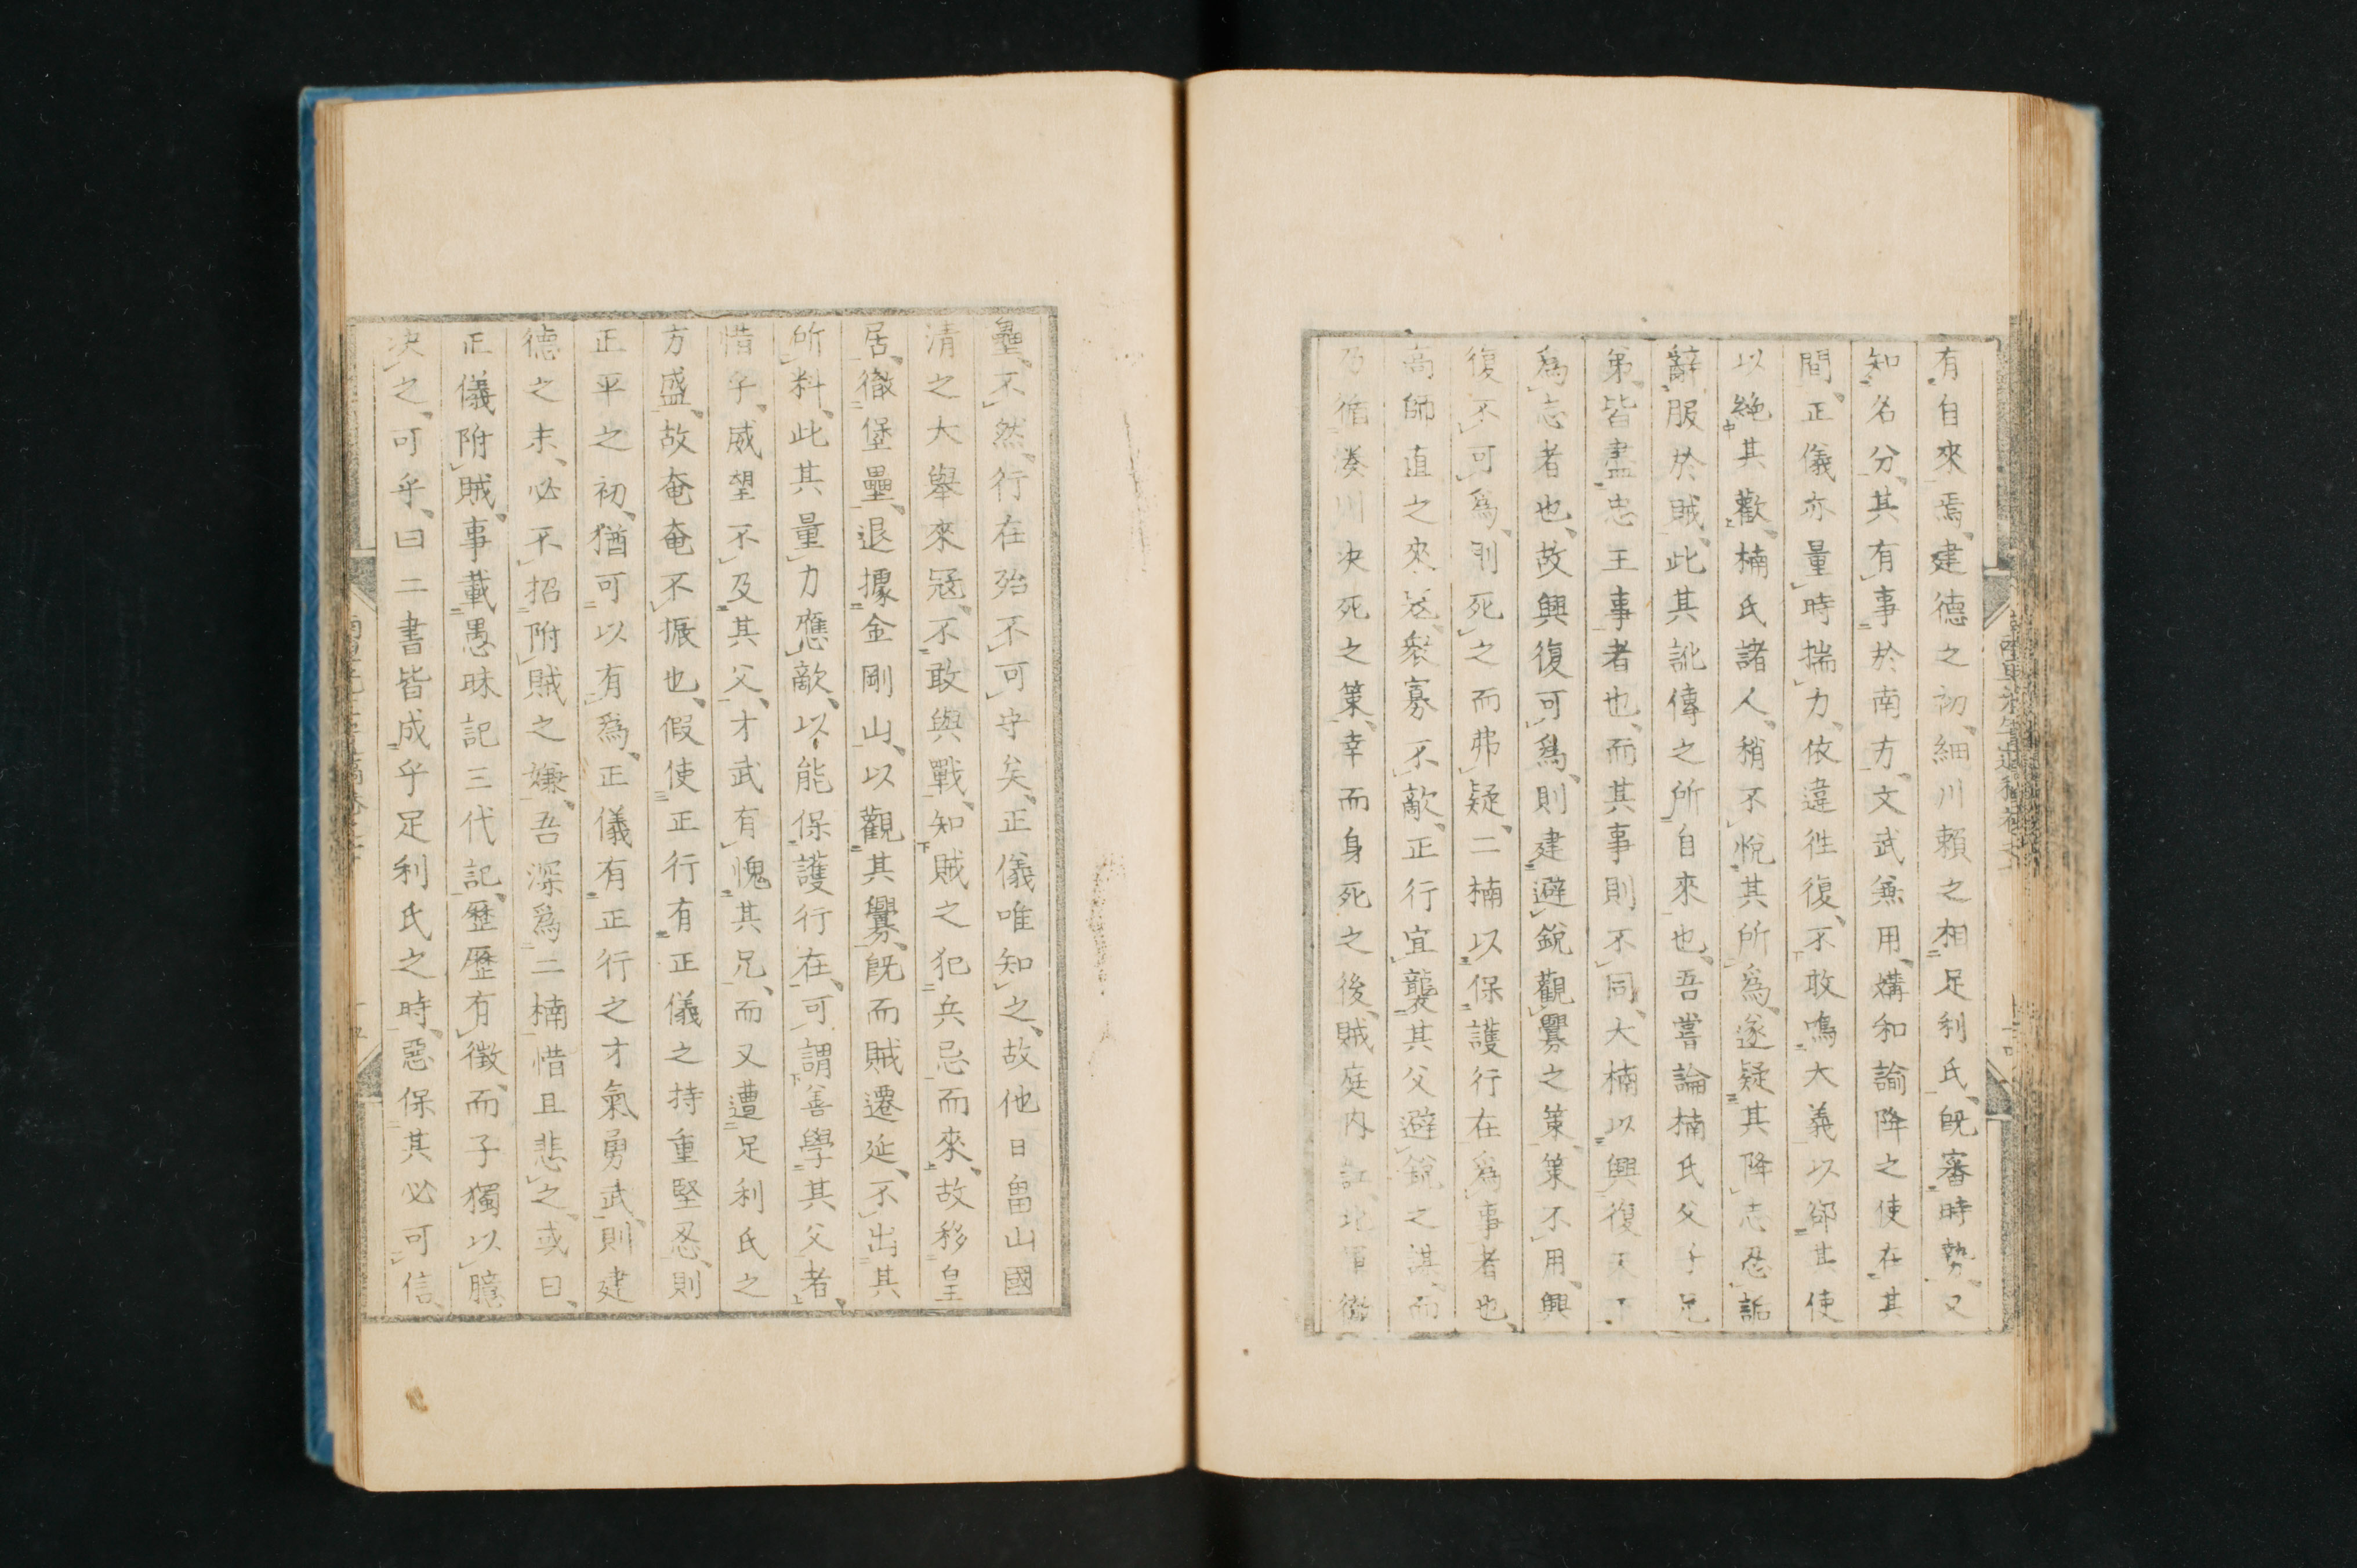 有自來焉、建德之初、細川賴之相足利氏、既審時勢、又
知名分、其有事於南方、文武兼用、媾和諭降之使在其
間、正儀亦量時揣力、依違徃復、不敢鳴大義以郤其使
以絶其歡、楠氏諸人、稍不悅其所爲、遂疑其降志忍詬
辭服於賊、此其訛傳之所自來也、吾嘗論楠氏父子兄
弟、皆盡忠王事者也、而其事則不同、大楠以興復天下
爲志者也、故興復可爲、則建避銳觀釁之策、策不用、興
復不可爲、則死之而弗疑、二楠以保護行在爲事者也、
高師直之來寇、衆寡不敵、正行宜襲其父避銳之謀、而
乃循湊川決死之策、幸而身死之後、賊庭內訌、北軍徹
壘、不然、行在殆不可守矣、正儀唯知之、故他日畠山國
清之大擧來冦、不敢與戰、知賊之犯兵忌而來、故移皇
居、徹堡壘、退據金剛山、以觀其釁、既而賊遷延、不出其
所料、此其量力應敵、以能保護行在、可謂善學其父者、
惜乎、威望不及其父、才武有愧其兄、而又遭足利氏之
方盛、故奄奄不振也、假使正行有正儀之持重堅忍、則
正平之初、猶可以有爲、正儀有正行之才氣勇武、則建
德之末、必不招附賊之嫌、吾深爲二楠惜且悲之、或曰、
正儀附賊、事載愚昧記三代記、歷歷有徵、而子獨以臆
決之、可乎、曰二書皆成乎足利氏之時、惡保其必可信、